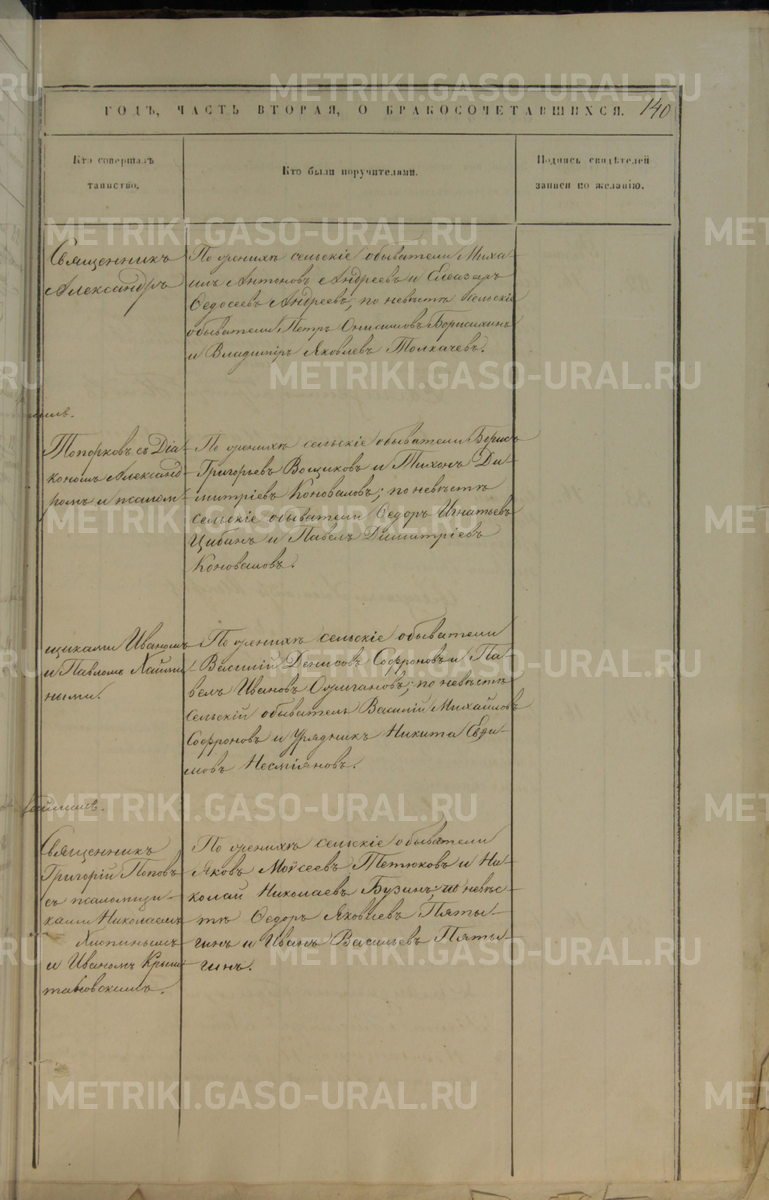 ГОДЪ, ЧАСТЬ ВТОРАЯ, О БРАКОСОЧЕТАВШИХСЯ. 140
Кто совершалъ таинство.
Кто были поручителями.
Подпись свидѣтелей записи по желанію.
Священникъ
Александръ
По женихѣ сельскіе обыватели Миха-
илъ Антоновъ Андреевъ и
Ѳедосеевъ Андреевъ; по невѣстѣ сельскіе
обыватели Петръ Онисимовъ Борисихинъ
и Владиміръ Яковлевъ Толкачевъ.
Топорковъ съ Діа-
кономъ Александ-
ромъ и псалом-
По женихѣ сельскіе обыватели Борисъ
Григорьевъ Вощиковъ и Тихонъ Ди-
митріевъ Коноваловъ; по невѣстѣ
сельскіе обыватели Ѳедоръ Игнатьевъ
Цибинъ и Павелъ Димитріевъ
Коноваловъ.
щиками Иваномъ
и Павломъ
ными.
По женихѣ сельскіе обыватели
Василій Денисовъ Софроновъ и Па-
велъ Ивановъ; по невѣстѣ
сельскій обыватель Василій Михайловъ
Софроновъ и Урядникъ Никита Евфи-
мовъ Несміяновъ.
Священникъ
Григорій Поповъ
съ псаломщи-
ками Николаемъ
и Иваномъ
По женихѣ сельскіе обыватели
Яковъ Моѵсеевъ Петюковъ и Ни-
колай Николаевъ Бузинъ; по невѣс-
тѣ Ѳедоръ Яковлевъ Пяты-
гинъ и Иванъ Васильевъ Пяты-
гинъ.
METRIKI.GASO-URAL.RU